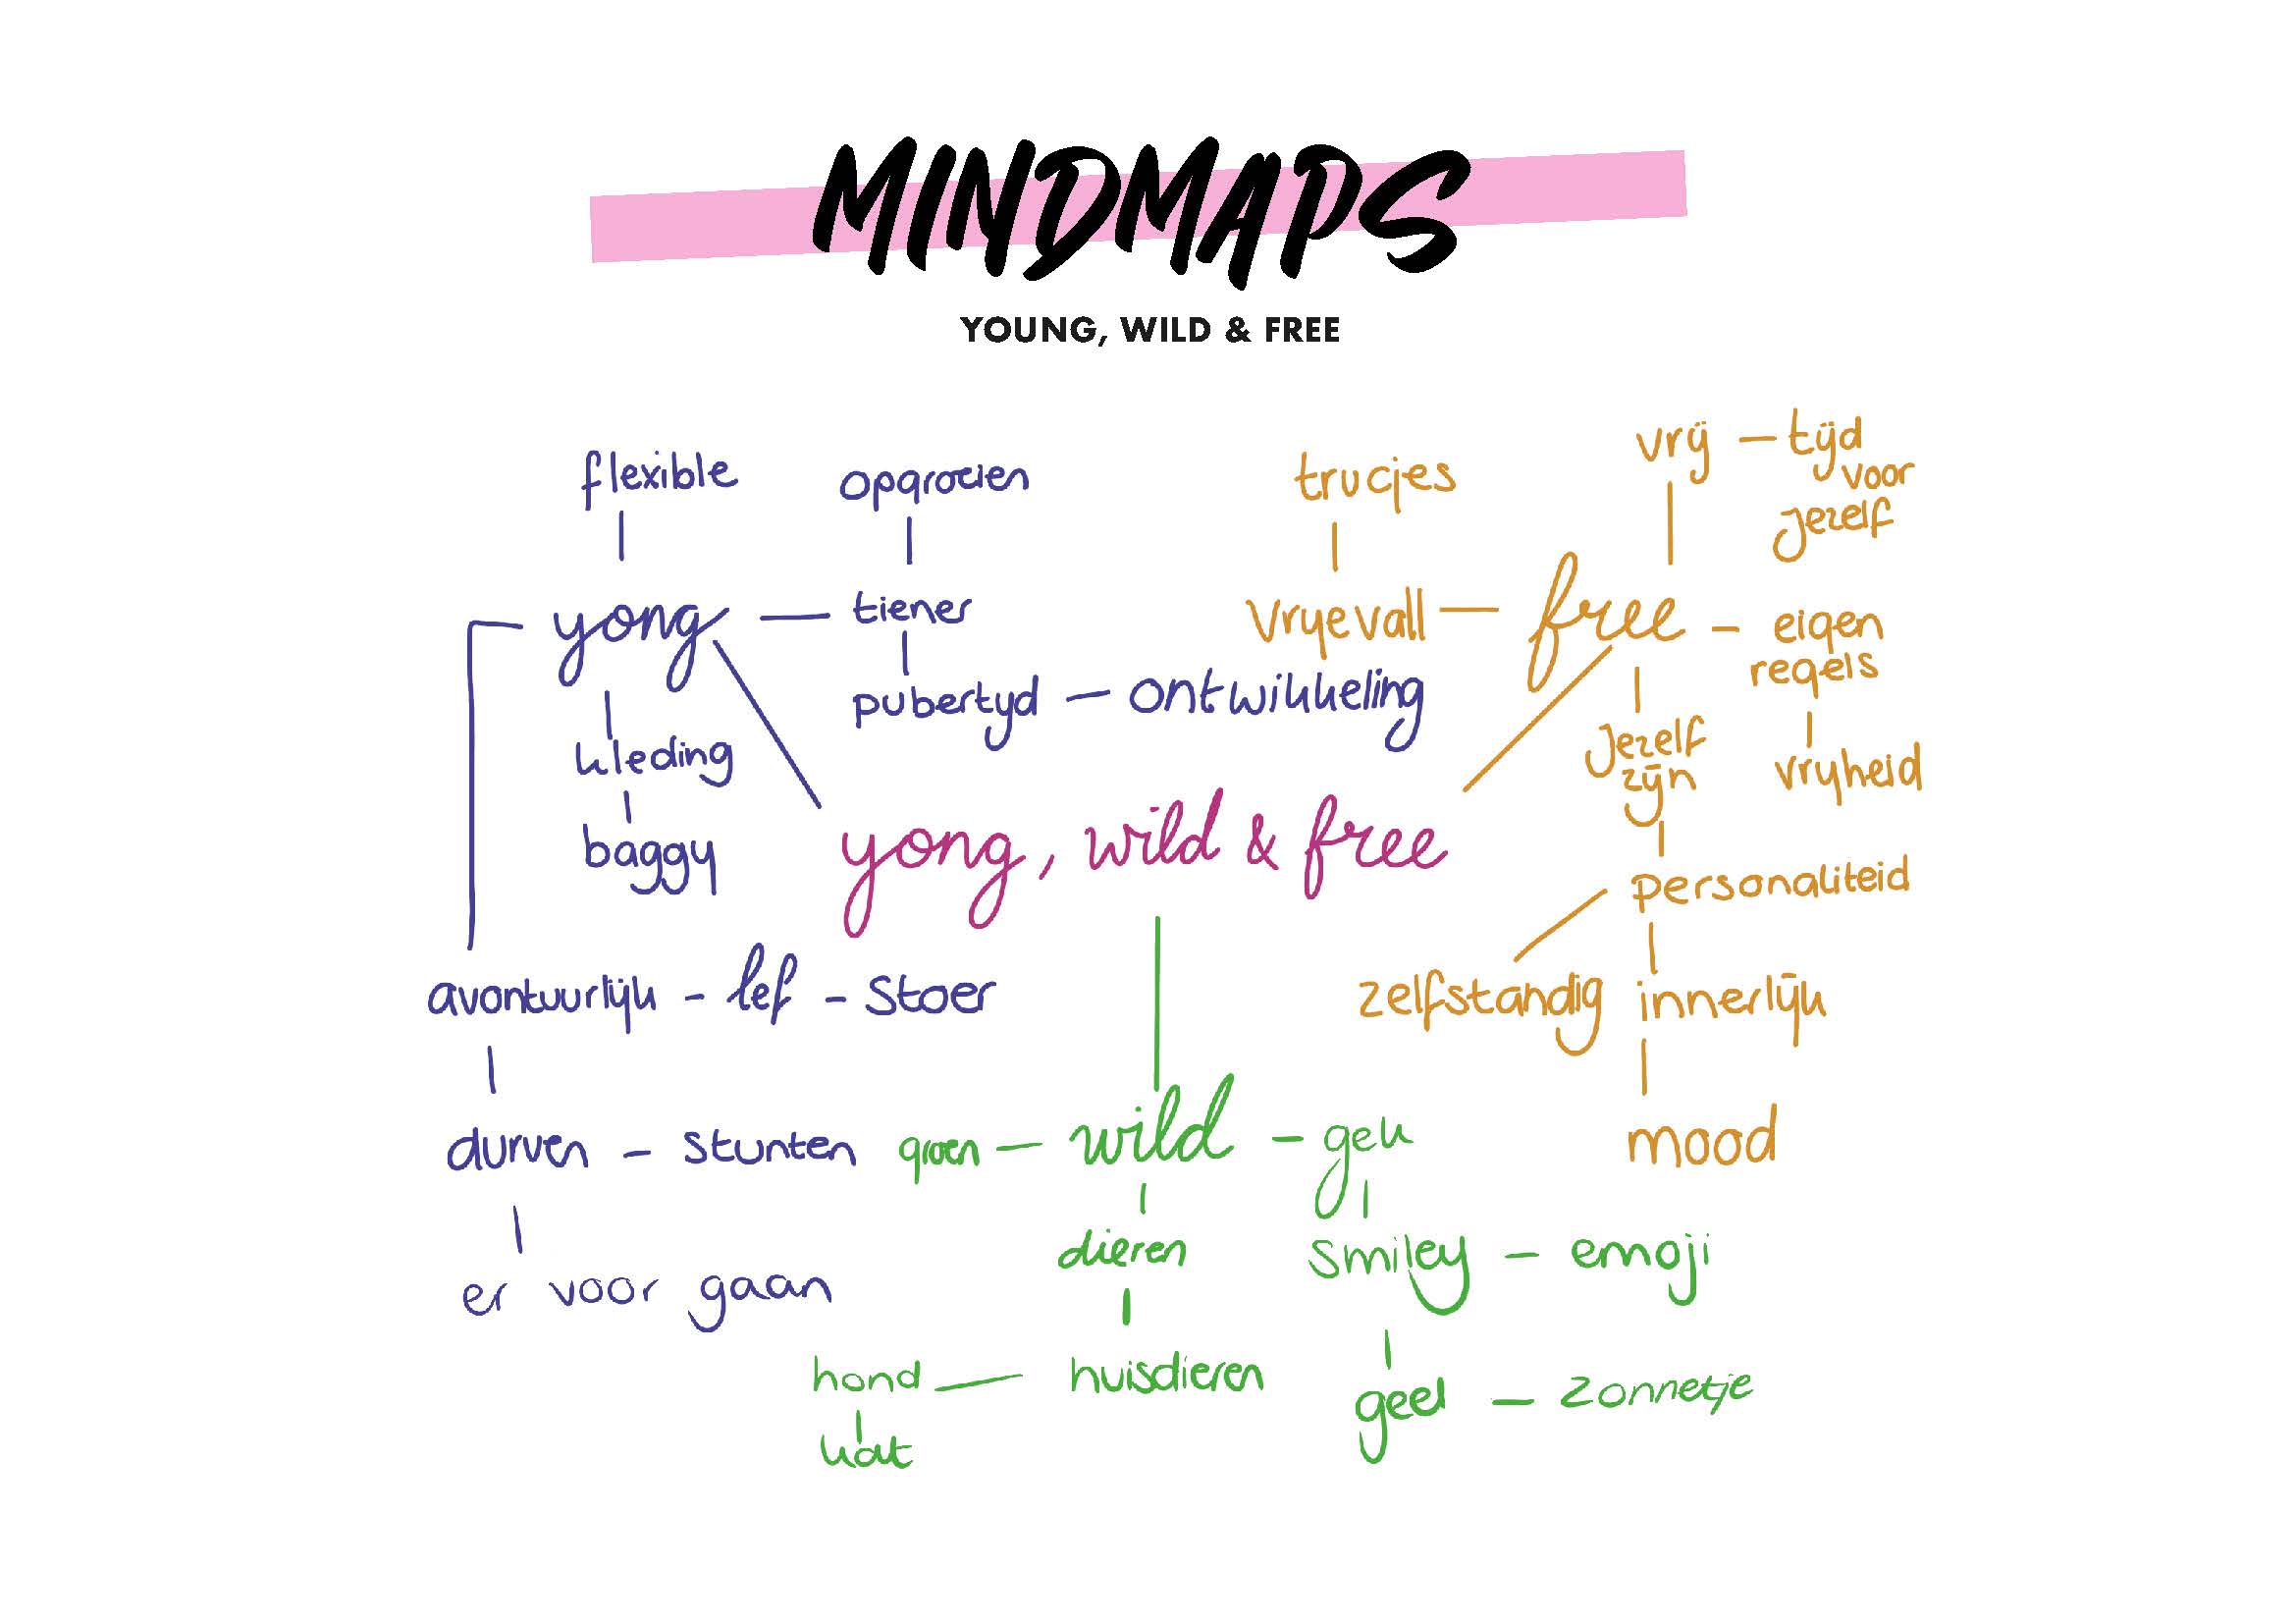 MINDMAPS
YOUNG, WILD & FREE
flexible
opgroeien
trucjes
vrij – tijd
voor
jezelf
yong — tiener
vryevall — free – eigen
regels
pubertyd – ontwikkeling
kleding
jezelf
zijn
vryheid
baggy
yong, wild & free
personaliteid
avontuurlijk – lef – stoer
zelfstandig innerlijk
durven – stunten
groen – wild – gek
mood
dieren
smiley – emoji
er voor gaan
hond — huisdieren
geel – zonnetje
kat